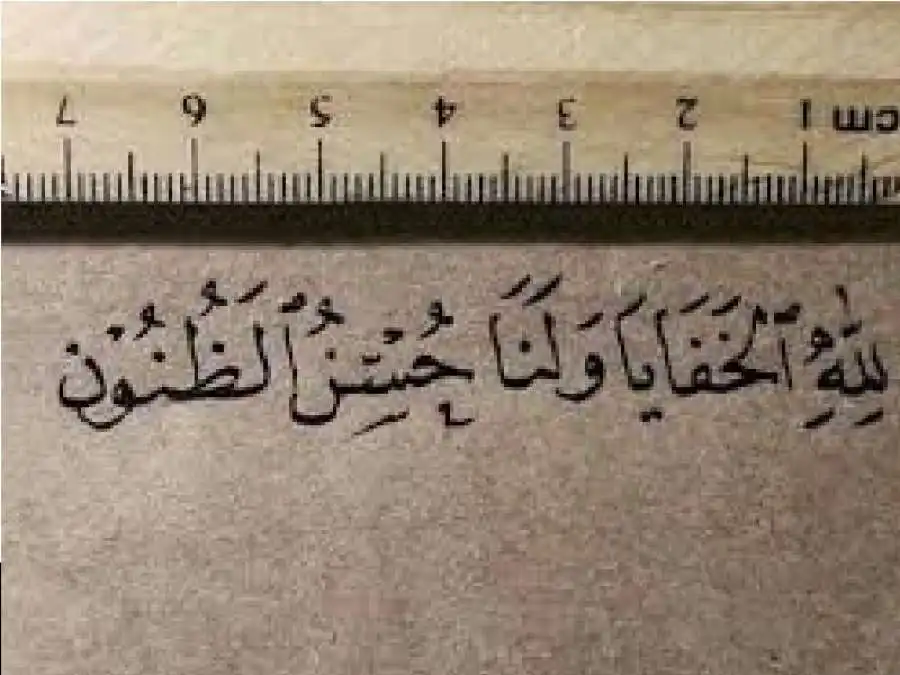 7 6 5 4 3 2 1 cm
لِلَّهِ ٱلْخَفَايَا وَلَنَا حُسْنُ ٱلظُّنُونْ